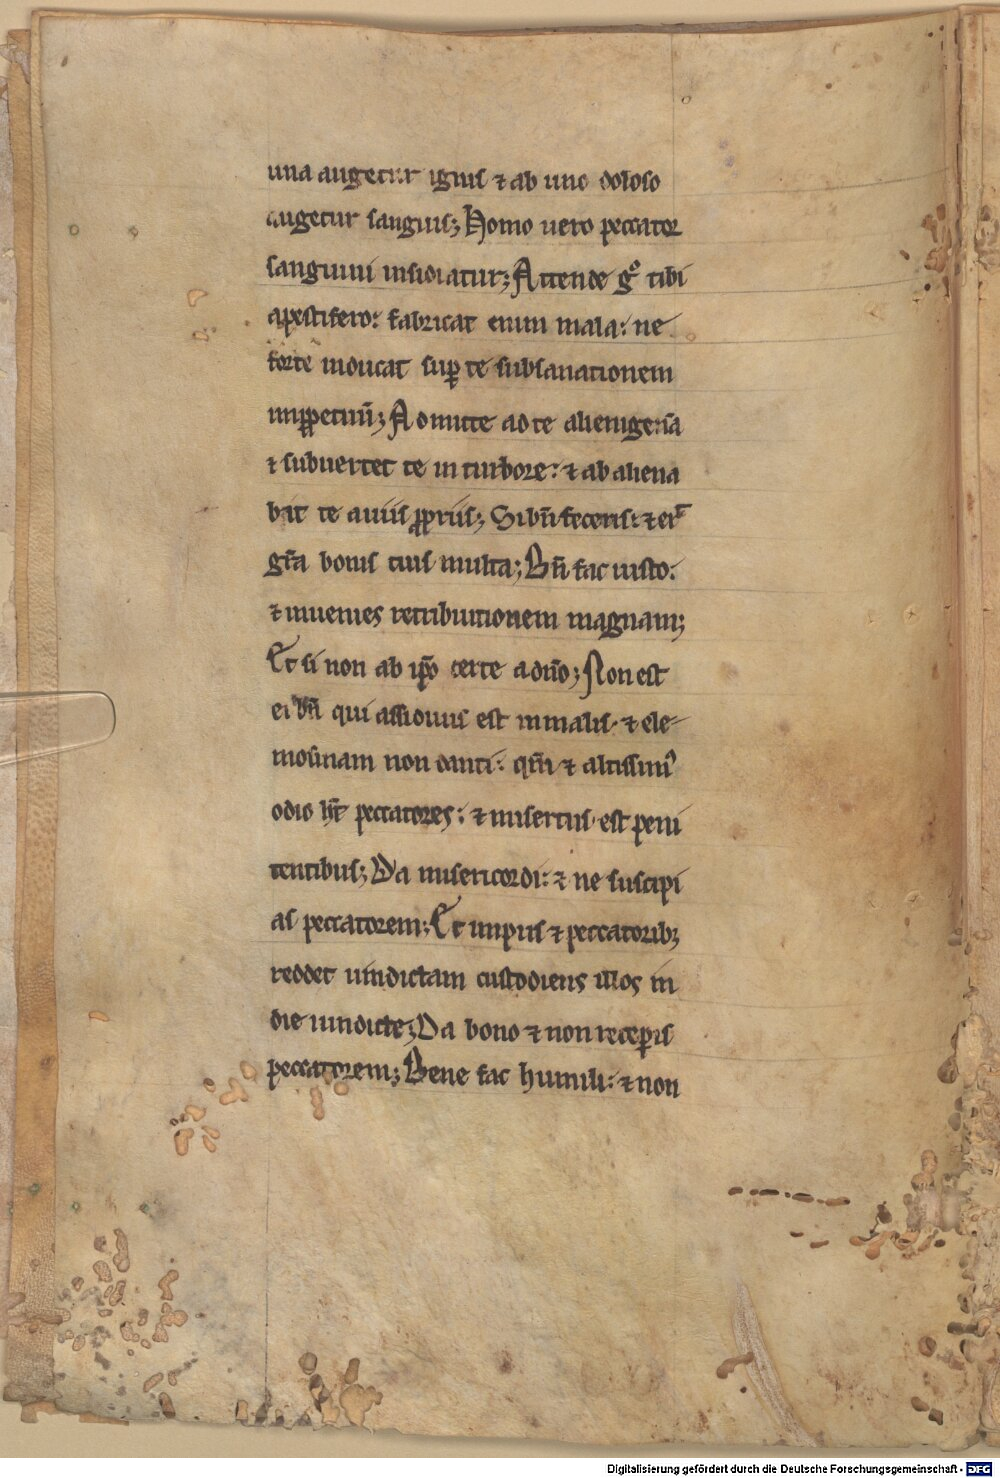 una augetur ignis ⁊ ab uno doloso
augetur sanguis; Homo uero peccator
sanguini insidiatur; Attende gͦ tibi
a pestifero: fabricat enim mala: ne
forte inducat suꝑ te subsanationem
inꝑpetuū; Admitte ad te alienigenā
⁊ subuertet te in turbore: ⁊ ab aliena
bit te a uiis ꝓpriis; Si bn̄ feceris: ⁊ erit
gr̄a bonis tuis multa; Bn̄ fac iusto:
⁊ inuenies retributionem magnam;
Et si non ab ip̄o certe a dn̄o; Non est
ei bn̄ qui assiduus est in malis· ⁊ ele-
mosinam non danti: qm̄ ⁊ altissimꝰ
odio h̄t peccatores: ⁊ misertus est peni
tentibus; Da misericordi: ⁊ ne suscipi
as peccatorem; Et impiis ⁊ peccatorib;
reddet uindictam custodiens illos in
die uindicte; Da bono ⁊ non receꝑis
peccatorem; Bene fac humili: ⁊ non
Digitalisierung gefördert durch die Deutsche Forschungsgemeinschaft - DFG